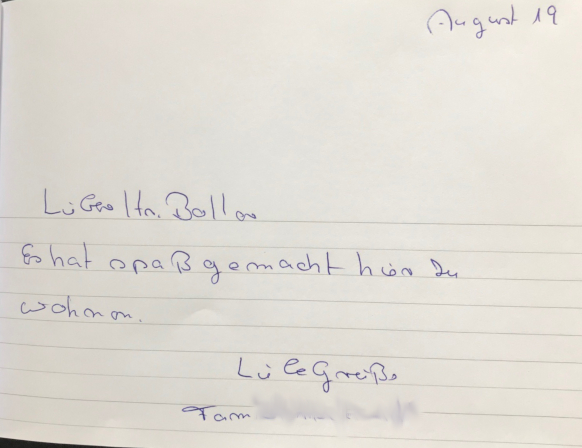 August 19
Lieber Hr.
Es hat spaß gemacht hier zu
wohnen.
Liebe Grüße
Fam